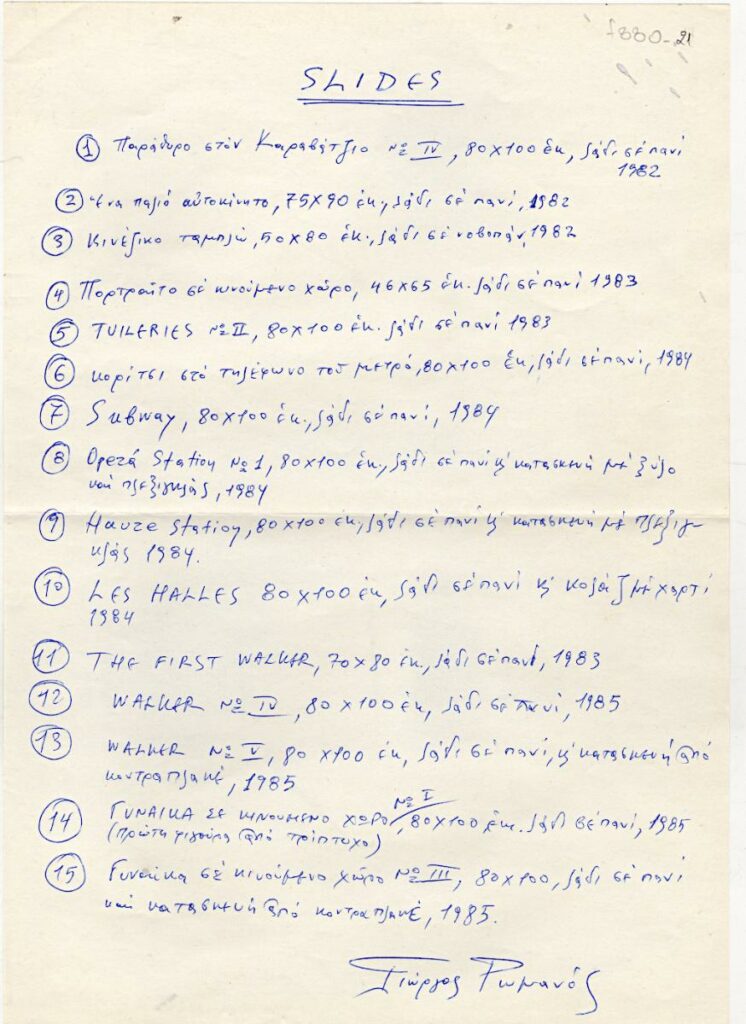 1880-21
SLIDES
① Παράθυρο στόν Καραβάτζιο Nº IV, 80X100 ἑκ, λάδι σέ πανί
1982
② Ἕνα παλιό αὐτοκίνητο, 75X90 ἑκ., λάδι σέ πανί, 1982
③ Κινέζικο ταμπλώ, 50X80 ἑκ., λάδι σέ νοβοπάν, 1982
④ Πορτραῖτο σέ κινούμενο χῶρο, 46X65 ἑκ. λάδι σέ πανί 1983
⑤ TUILERIES Nº II, 80X100 ἑκ. λάδι σέ πανί 1983
⑥ κορίτσι στό τηλέφωνο τοῦ μετρό, 80X100 ἑκ, λάδι σέ πανί, 1984
⑦ Subway, 80X100 ἑκ., λάδι σέ πανί, 1984
⑧ Operá Station Nº 1, 80X100 ἑκ., λάδι σέ πανί κ' κατασκευή μέ ξύλο
καί πλεξιγκλάς, 1984
⑨ Havre Station, 80X100 ἑκ, λάδι σέ πανί κ' κατασκευή μέ πλεξιγ-
κλάς 1984.
⑩ LES HALLES 80X100 ἑκ, λάδι σέ πανί κ' κολάζ μέ χαρτί
1984
⑪ THE FIRST WALKER, 70X80 ἑκ., λάδι σέ πανί, 1983
⑫ WALKER Nº IV, 80X100 ἑκ, λάδι σέ πανί, 1985
⑬ WALKER Nº V, 80X100 ἑκ, λάδι σέ πανί, κ' κατασκευή ἀπό
κοντραπλακέ, 1985
⑭ ΓΥΝΑΙΚΑ ΣΕ ΚΙΝΟΥΜΕΝΟ ΧΩΡΟ Nº I, 80X100 ἑκ. λάδι σέ πανί, 1985
(πρώτη φιγούρα ἀπό τρίπτυχο)
⑮ Γυναίκα σέ κινούμενο χῶρο Nº III, 80X100, λάδι σέ πανί
καί κατασκευή ἀπό κοντραπλακέ, 1985.
Γιώργος Ρωμανός